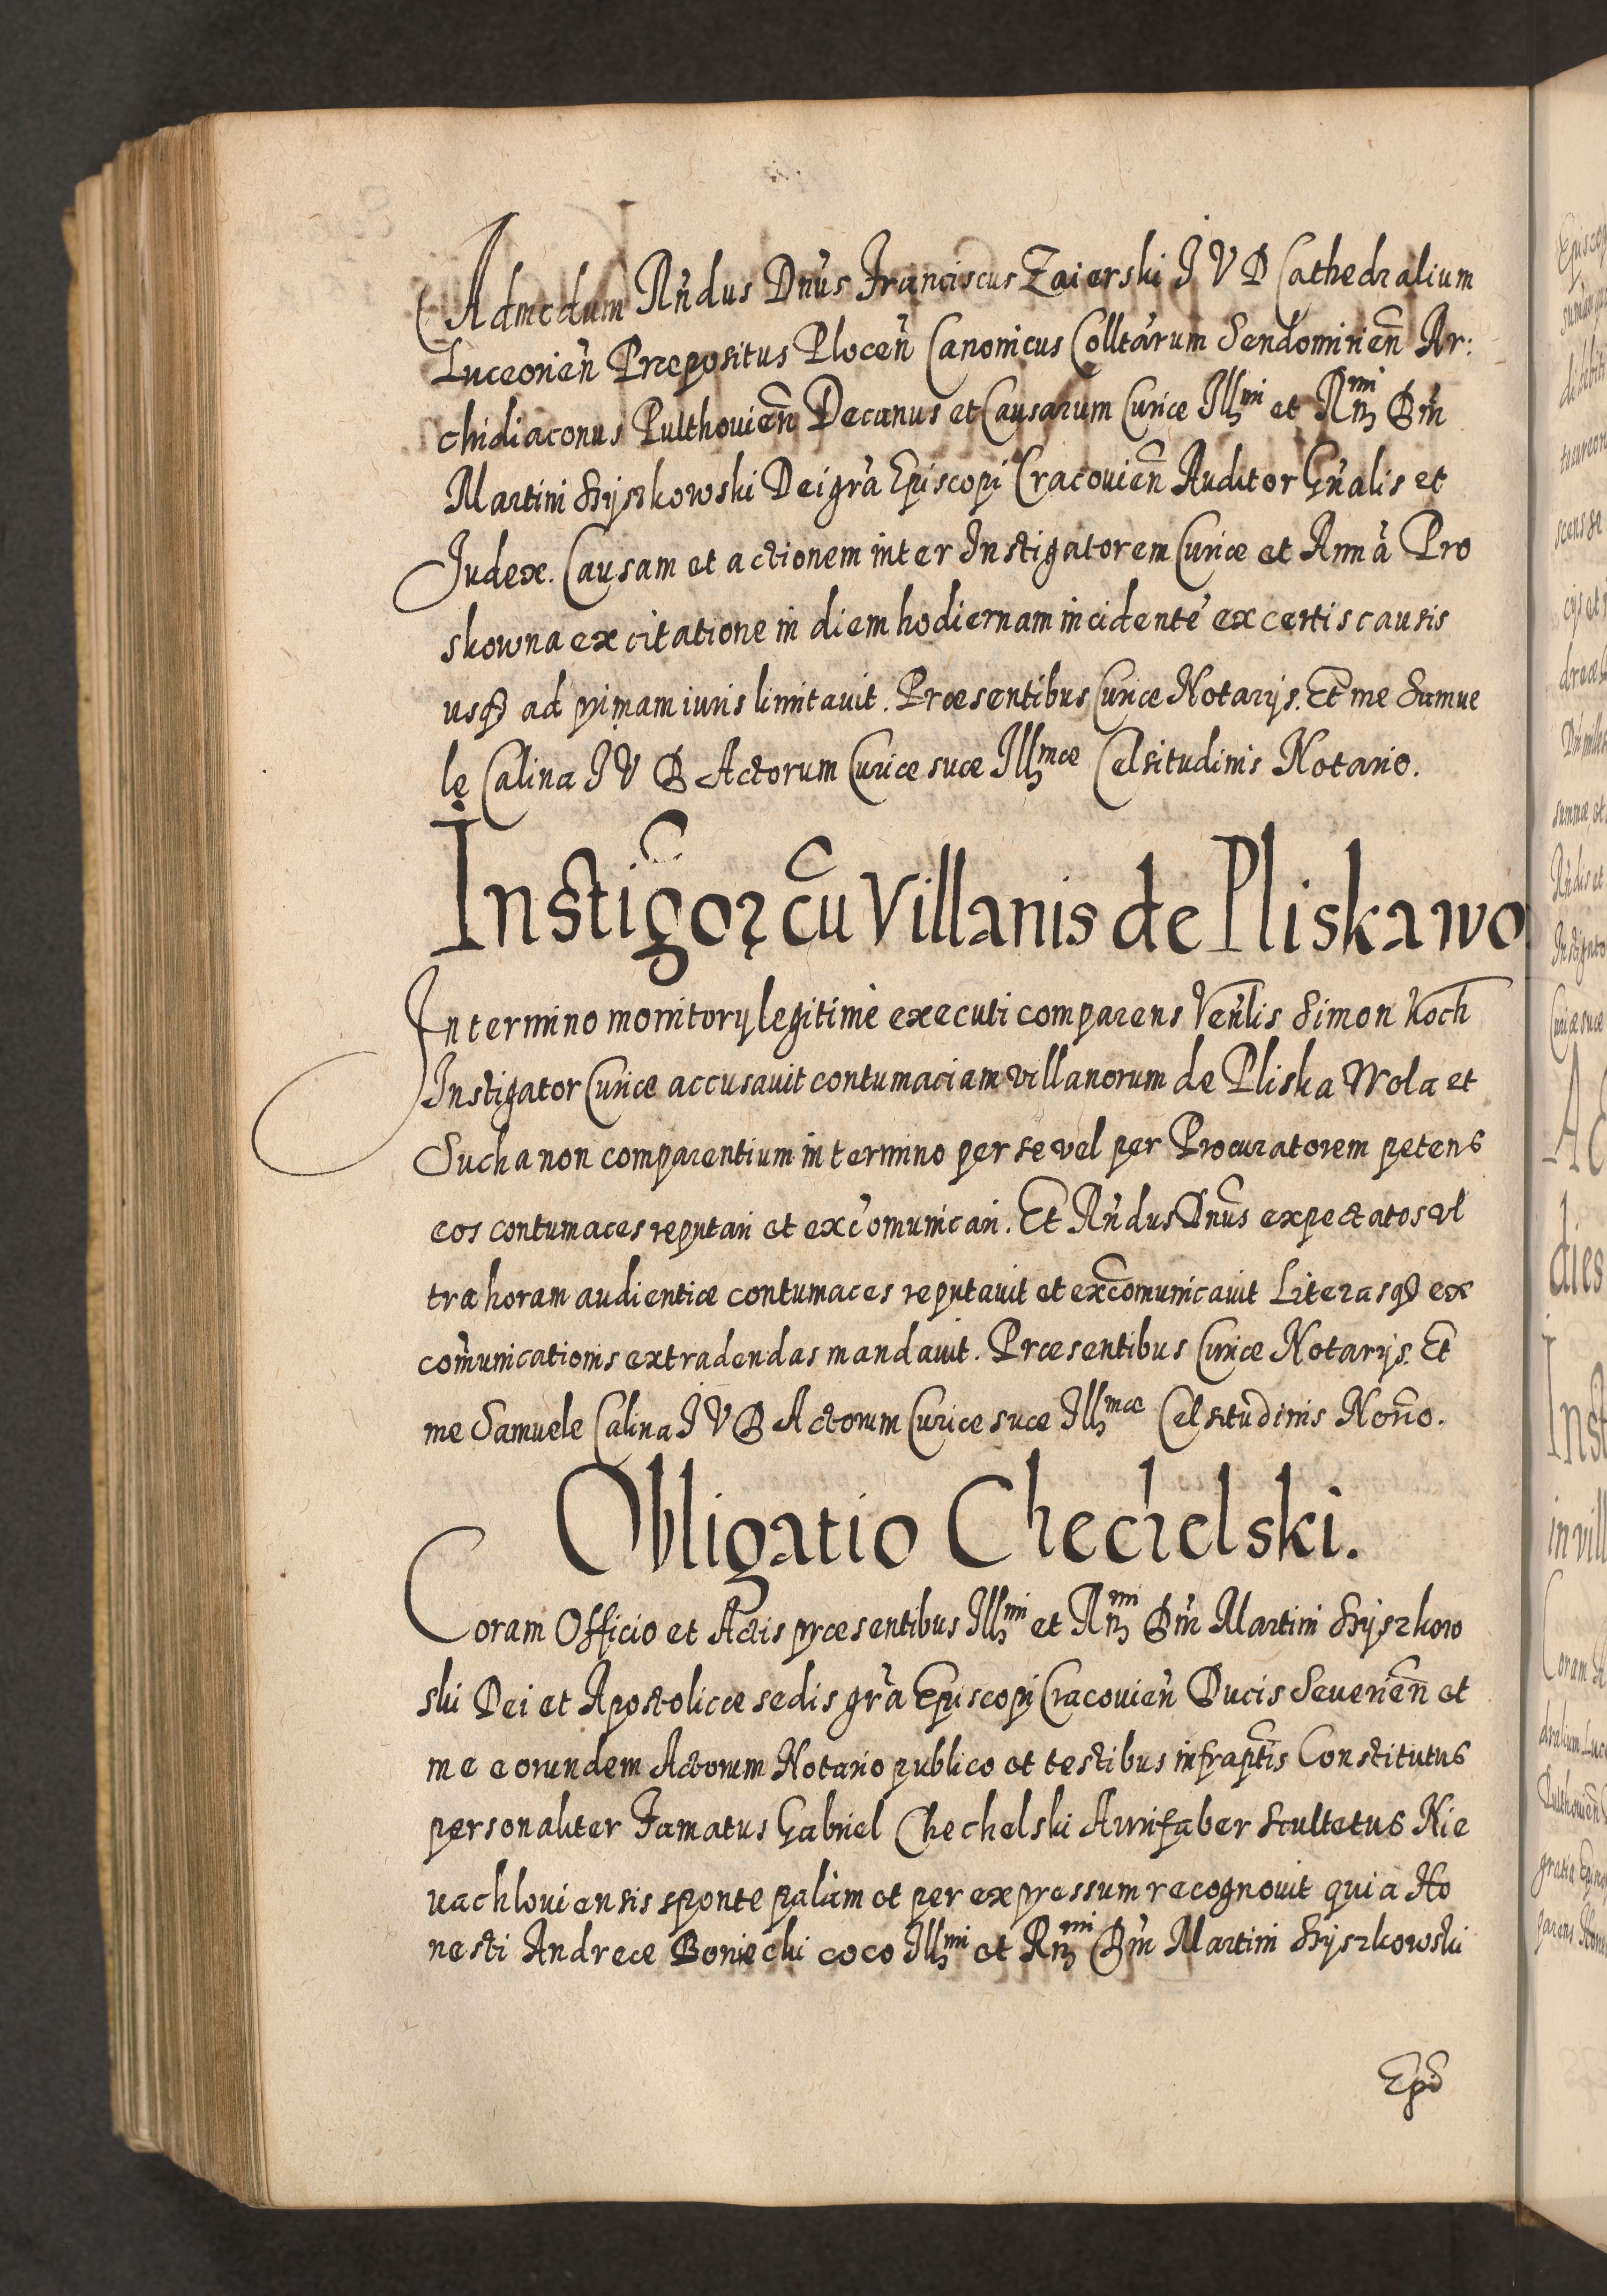 Admodum Rńdus Dnus Franciscus Zaierski J V D Cathedralium
Luceorień Præpositus Ploceń Canonicus Colltarum Sendomirieñ Ar:
chidiaconus Pulthouień Decanus et Causarum Curiæ Illmi et Rmi Dm̃
Martini Szyszkowski Dei gra Episcopi Cracouień Auditor Gńalis et
Judex. Causam et actionem inter Instigatorem Curiæ et Annã Pro
skowna ex citatione in diem hodiernam incidentẽ ex certis causis
usq3 ad primam iuris limitauit. Præsentibus Curiæ Notarijs. Et me Samue
le Calina J V D Actorum Curiæ suæ Illmæ Celsitudinis Notario.
Instig̃or cũ Villanis de Pliskawo
In termino monitorij legitimè executi comparens Venlis Simon Koch
Instigator Curiæ accusauit contumaciam villanorum de Pliska Wola et
Sucha non comparentium in termino per se vel per Procuratorem petens
eos contumaces reputari et excõmunicari. Et Rńdus Dnus expectatos vl
tra horam audientiæ contumaces reputauit et excõmunicauit Literasq3 ex
cõmunicationis extradendas mandauit. Præsentibus Curiæ Notarijs. Et
me Samuele Calina J V D Actorum Curiæ suæ Illmæ Celsitudinis Norio.
Obligatio Chechelski.
Coram Officio et Actis præsentibus Illmi et Rmi Dm̃ Martini Szyszkow
ski Dei et Apostolicæ sedis grã Episcopi Cracouień Ducis Seuerieñ et
me eorundem Actorum Notario publico et testibus infraptis Constitutus
personaliter Famatus Gabriel Chechelski Aurifaber Scultetus Nie
uachlouiensis sponte palàm et per expressum recognouit quia Ho
nesti Andreæ Boniecki coco Illmi et Rmi Dm̃ Martini Szyszkowski
Epi